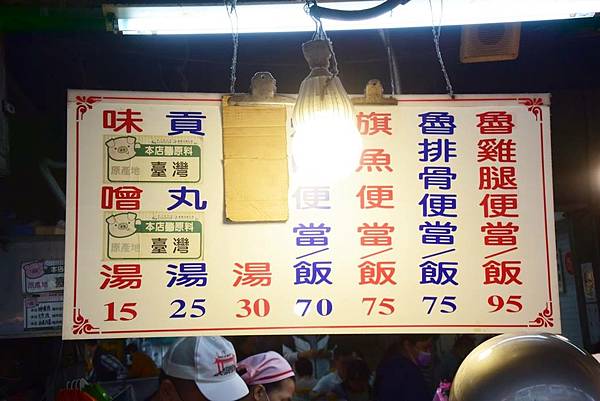 魯雞腿便當/飯 95
魯排骨便當/飯 75
旗魚便當/飯 75
便當/飯 70
湯 30
貢丸湯 25
味噌湯 15
本店豬原料
原產地 臺灣
本店豬原料
原產地 臺灣